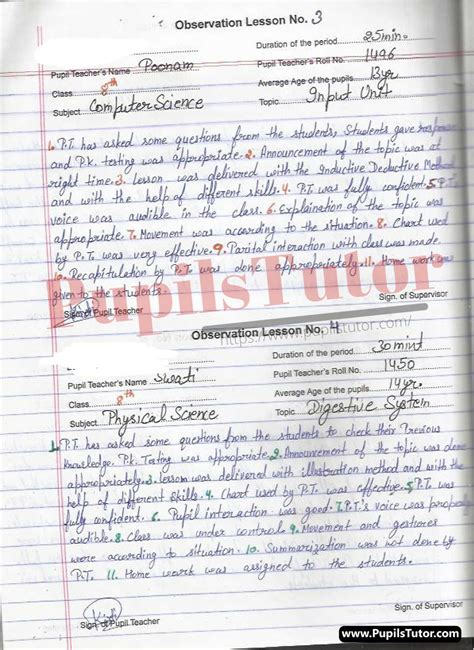 Observation Lesson No. 3
Duration of the period 25min.
Pupil Teacher's Name Poonam Pupil Teacher's Roll No. 1496
Class 8th Average Age of the pupils 13yr
Subject Computer Science Topic Input Unit
1. P.T. has asked some questions from the students, Students gave response
and P.K. testing was appropriate. 2. Announcement of the topic was at
right time. 3. Lesson was delivered with the Inductive Deductive Method
and with the help of different skills. 4. P.T. was fully confident. 5. P.T.
voice was audible in the class. 6. Explaination of the topic was
appropriate. 7. Movement was according to the situation. 8. Chart used
by P.T. was very effective. 9. Parital interaction with class was made.
10. Recapitulation by P.T. was done appropriately. 11. Home work was
given to the students.
PupilsTutor
Sign of Pupil Teacher Sign. of Supervisor
https://www.pupilstutor.com/
Observation Lesson No. 4
Duration of the period 30mint
Pupil Teacher's Name Swati Pupil Teacher's Roll No. 1450
Class 8th Average Age of the pupils 14yr.
Subject Physical Science Topic Digestive System
1. P.T. has asked some questions from the students to check their Previous
knowledge. P.K. Testing was appropriate. 2. Announcement of the topic was done
appropriately. 3. lesson was delivered with illustration method and with the
help of different skills. 4. Chart used by P.T. was effective. 5. P.T. was
fully confident. 6. Pupil interaction was good. 7. P.T's voice was properly
audible. 8. Class was under control. 9. Movement and gestures
were according to situation. 10. Summarization was not done by
P.T. 11. Home work was assigned to the students.
Sign. of Pupil Teacher Sign. of Supervisor
www.PupilsTutor.com